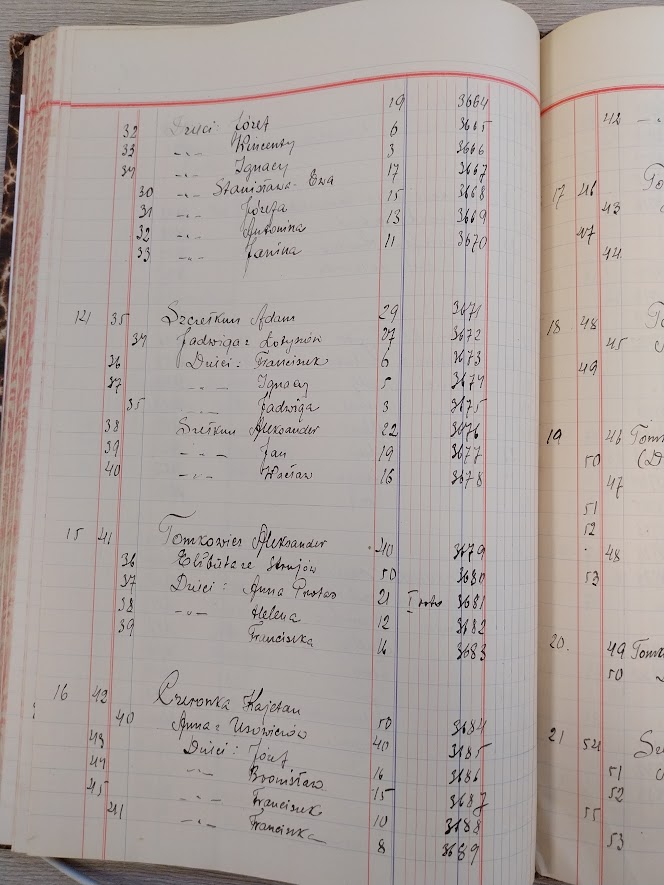 19 3664
32 Dzieci: Józef 6 3665
33 -„- Wincenty 3 3666
34 -„- Ignacy 17 3667
30 -„- Stanisława-Ewa 15 3668
31 -„- Józefa 13 3669
32 -„- Antonina 11 3670
33 -„- Janina
14 35 Szczetkun Adam 29 3671
34 Jadwiga z Łotyszów 27 3672
36 Dzieci: Franciszek 6 3673
37 -„- Ignacy 5 3674
35 -„- Jadwiga 3 3675
38 Szetkun Aleksander 22 3676
39 -„- Jan 19 3677
40 -„- Wacław 16 3678
15 41 Tomkowicz Aleksander 40 3679
36 Elżbieta ze 50 3680
37 Dzieci: Anna Protas 21 I voto 3681
38 -„- Helena 12 3682
39 Franciszka 16 3683
16 42 Czeronka Kajetan
40 Anna z Usowiczów 50 3684
43 Dzieci: Józef 40 3685
44 -„- Bronisław 16 3686
45 -„- Franciszek 15 3687
41 -„- Franciszka 10 3688
8 3689
42
17 46 To
43
47
44
18 48
45
49
19 46 Tomk
50 (D
47
51
52
48
53
20. 49 Tomk
50
21 54 Sz
51
52
55
53